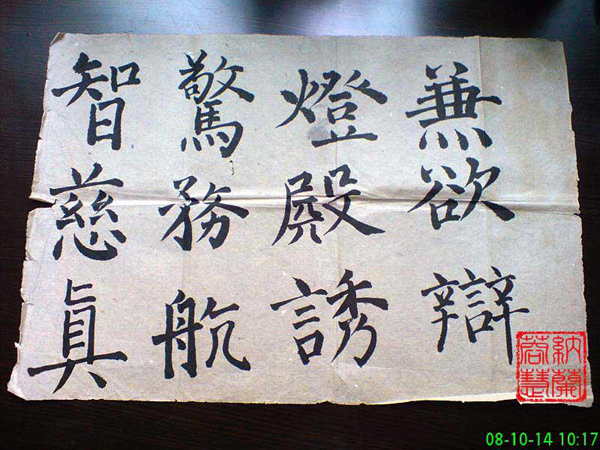 兼欲辯
燈殿誘
驚務航
智慈真
納蘭
08-10-14 10:17